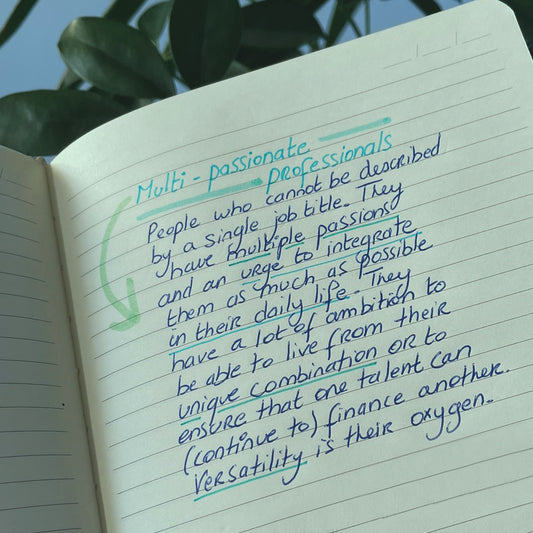 Multi-passionate
professionals
People who cannot be described
by a single job title. They
have multiple passions
and an urge to integrate
them as much as possible
in their daily life. They
have a lot of ambition to
be able to live from their
unique combination or to
ensure that one talent can
(continue to) finance another.
Versatility is their oxygen.